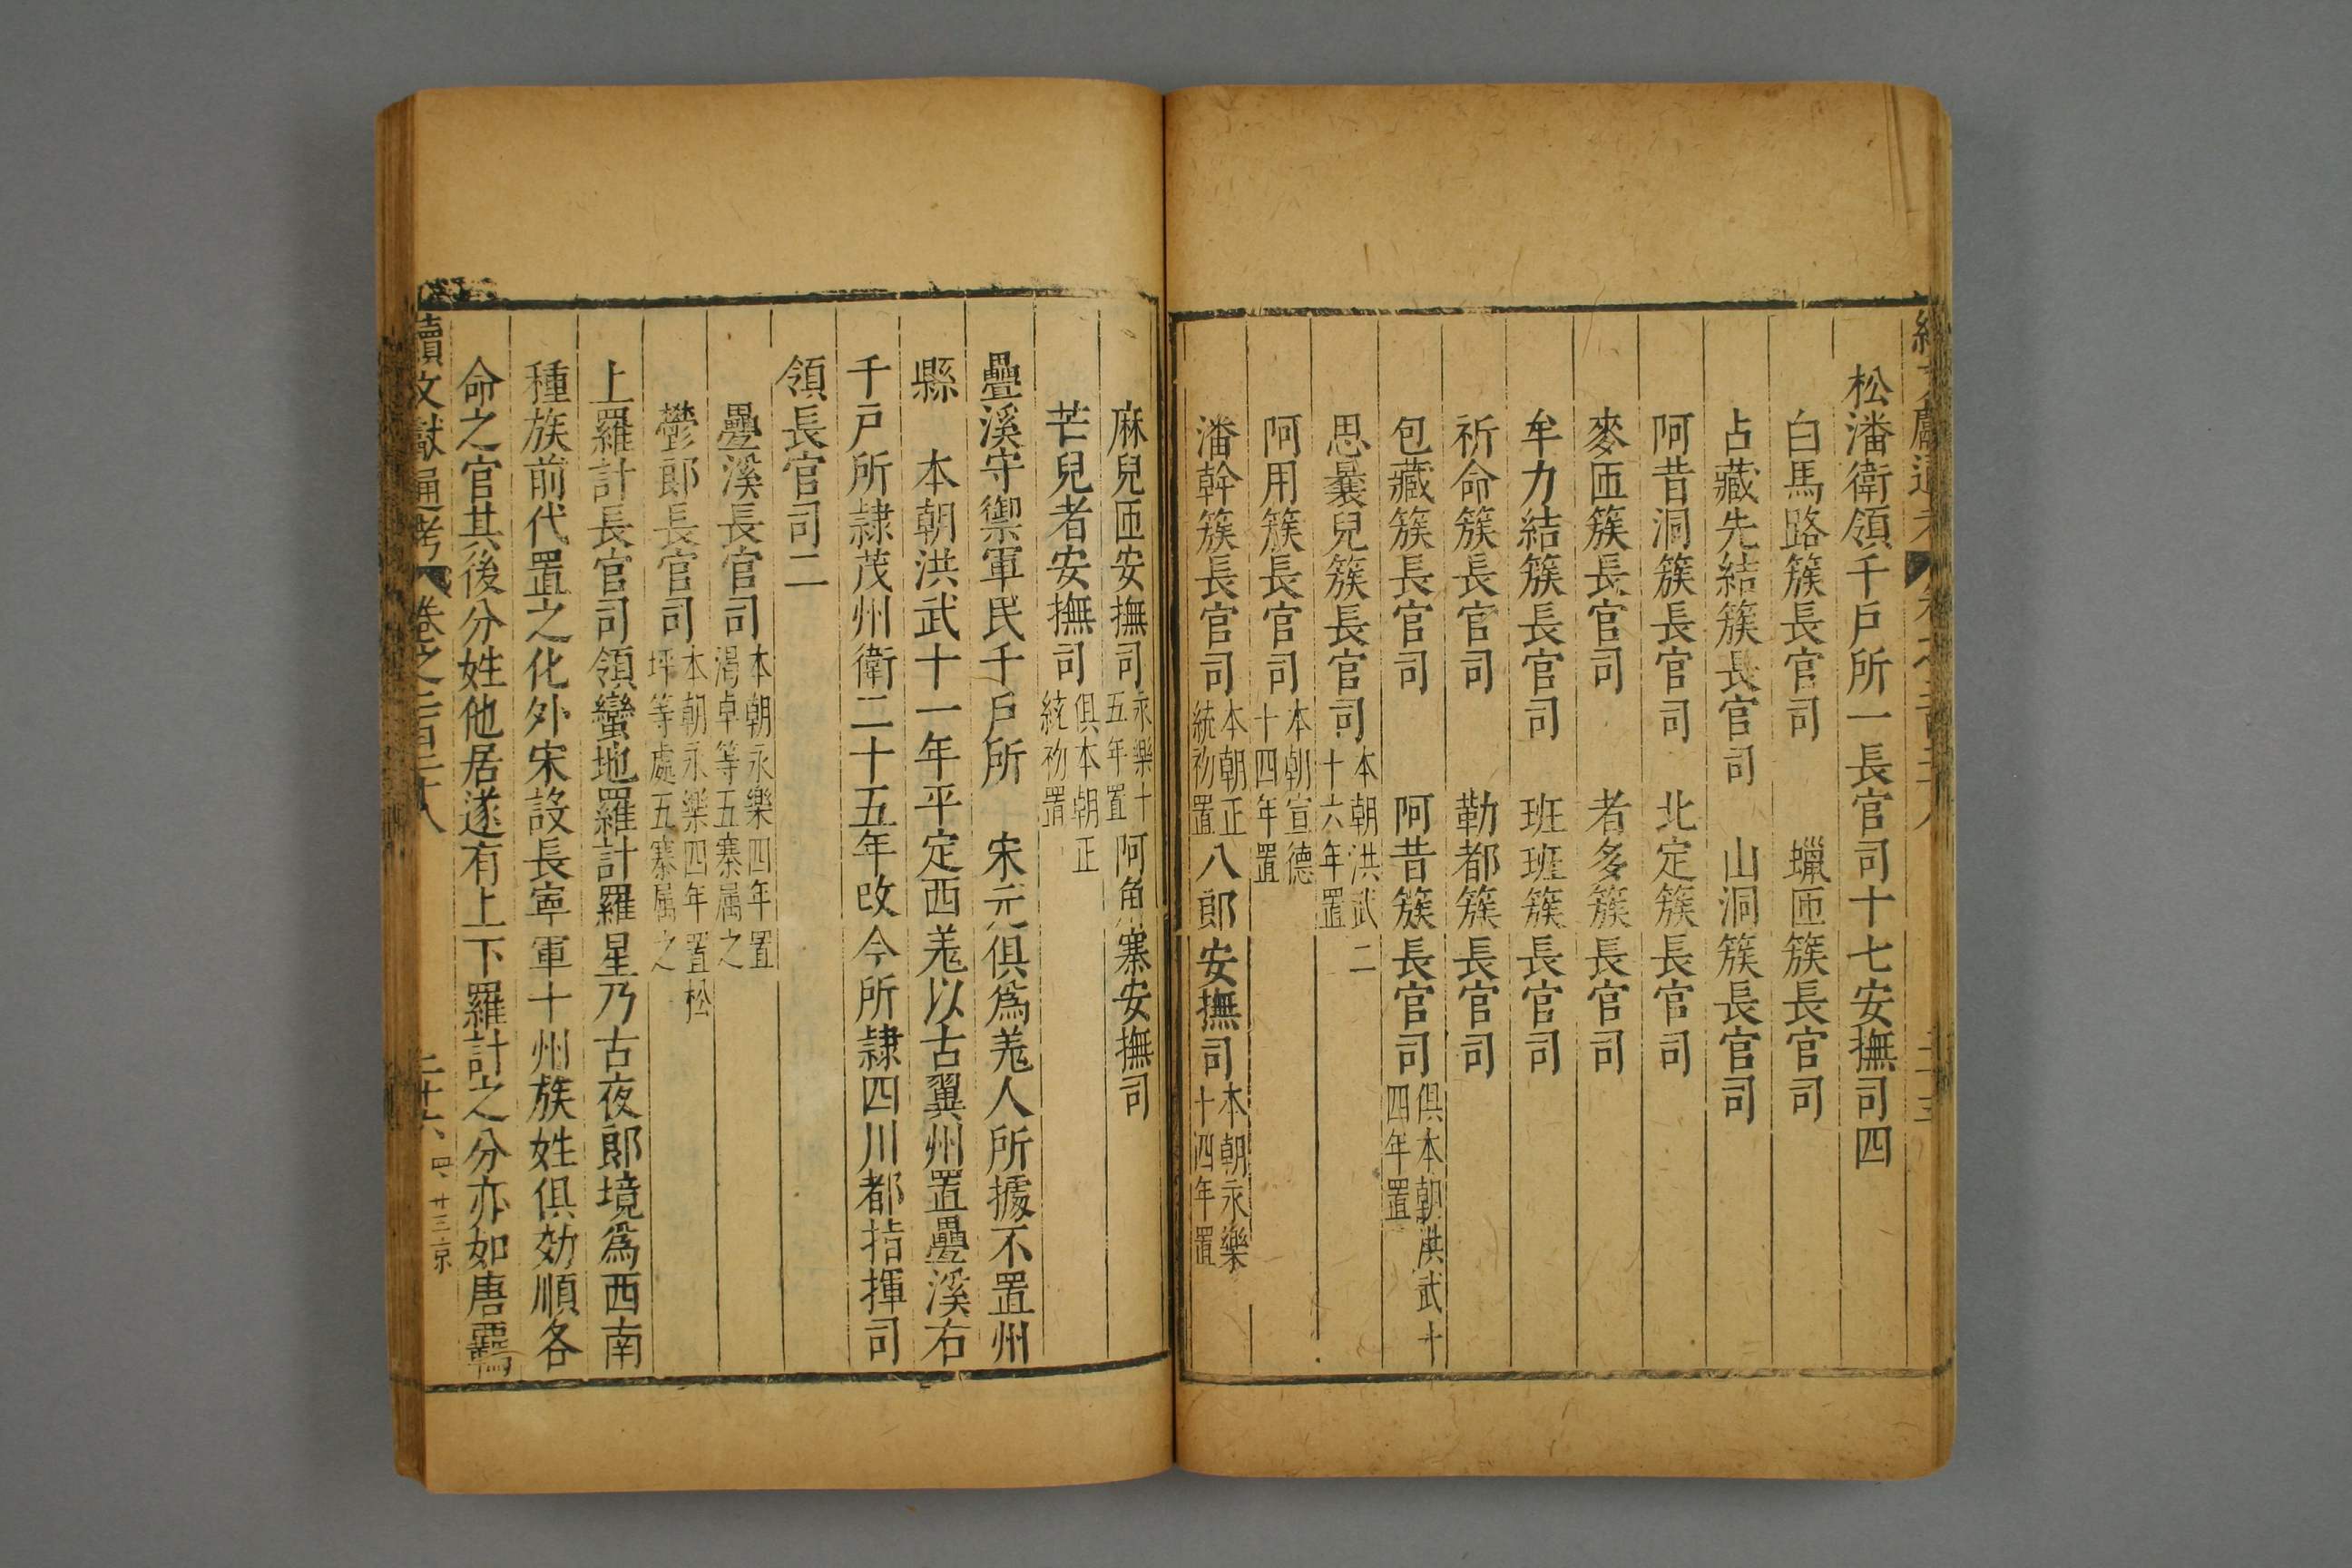 松潘衛領千戶所一長官司十七安撫司四
白馬路簇長官司 蠟匝簇長官司
占藏先結簇長官司 山洞簇長官司
阿昔洞簇長官司 北定簇長官司
麥匝簇長官司 者多簇長官司
牟力結簇長官司 班班簇長官司
祈命簇長官司 勒都簇長官司
包藏簇長官司 阿昔簇長官司俱本朝洪武十四年置
思曩兒簇長官司本朝洪武二十六年置
阿用簇長官司本朝宣德十四年置
潘幹簇長官司本朝正統初置八郎安撫司本朝永樂十四年置
麻兒匝安撫司永樂十五年置阿角寨安撫司
芒兒者安撫司俱本朝正統初置
疊溪守禦軍民千戶所 宋元俱爲羌人所據不置州
縣 本朝洪武十一年平定西羌以古翼州置疊溪右
千戶所隷茂州衛二十五年改今所隷四川都指揮司
領長官司二
疊溪長官司本朝永樂四年置渴卓等五寨属之
鬱郎長官司本朝永樂四年置松坪等處五寨属之
上羅計長官司領蠻地羅計羅星乃古夜郎境爲西南
種族前代置之化外宋設長寧軍十州族姓俱効順各
命之官其後分姓他居遂有上下羅計之分亦如唐羈
續文獻通考 卷之二百三十八 二十六 四 廿三 京